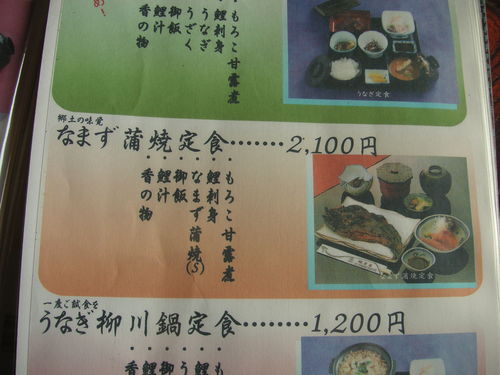 もろこ甘露煮
鯉刺身
うなぎ
うざく
御飯
鯉汁
香の物
うなぎ定食
郷土の味覚
なまず蒲焼定食・・・・・・・2,100円
もろこ甘露煮
鯉刺身
なまず蒲焼(S)
御飯
鯉汁
香の物
なまず蒲焼定食
一度ご試食を
うなぎ柳川鍋定食・・・・・・・・1,200円
も
鯉
う
御
鯉
香